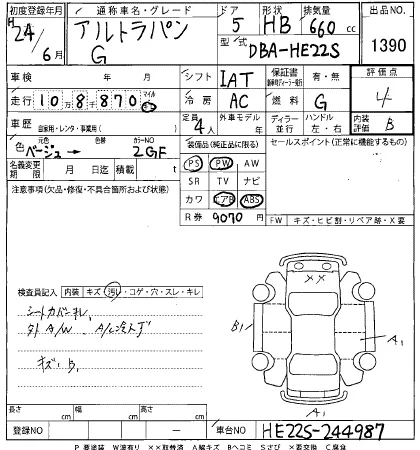 初度登録年月 通称車名・グレード ドア 形状 排気量 出品NO.
H24/6月 アルトラパン G 5 HB 660cc 1390
型式 DBA-HE22S
車検 年 月 シフト IAT 保証書 有・無 評価点
走行 10万8千870 マイル km 冷房 AC 燃料 G 4
車歴 自家用・レンタ・事業用( ) 定員 4人 外車モデル 年 ディーラー 並行 ハンドル 左・右 内装評価 B
色 元色 ベージュ → 色替 カラーNO 2GF 装備品(純正品に限る) セールスポイント(正常に機能するもの)
名義変更期限 月 日迄 積載 t PS PW AW
注意事項(欠品・修復・不具合箇所および状態) SR TV ナビ
カワ エアB ABS
R券 9070円 FW キズ・ヒビ割・リペア跡・X要
検査員記入 内装 キズ・汚レ・コゲ・穴・スレ・キレ
シートカバーキレ
外A/W A/C冷え不
キズB1
B1 A1 A1
長さ cm 幅 cm 高さ cm
登録NO ー 車台NO HE22S-244987
P 要塗装 W波有り ××取替済 A線キズ Bヘコミ Sさび ×要交換 C腐食